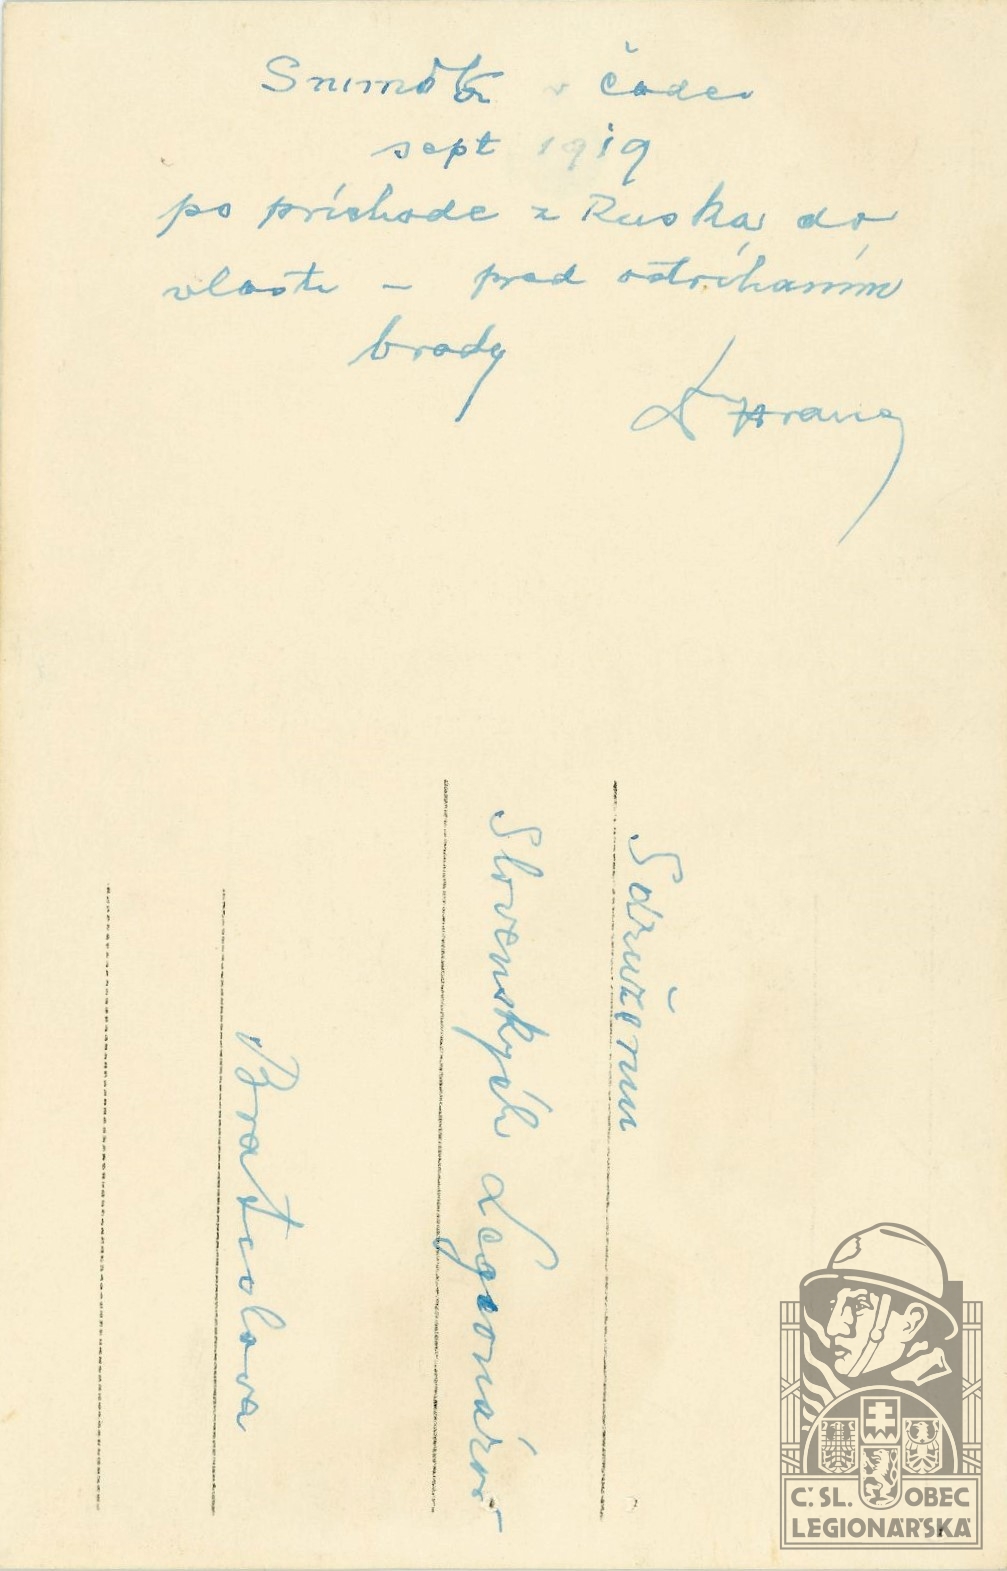 Snímka v Čadci
sept 1919
po príchode z Ruska do
vlasti – pred ostrihaním
brady
Sdruženiu
Slovenských Legionárov
Bratislava
Č. SL. OBEC
LEGIONÁŘSKÁ